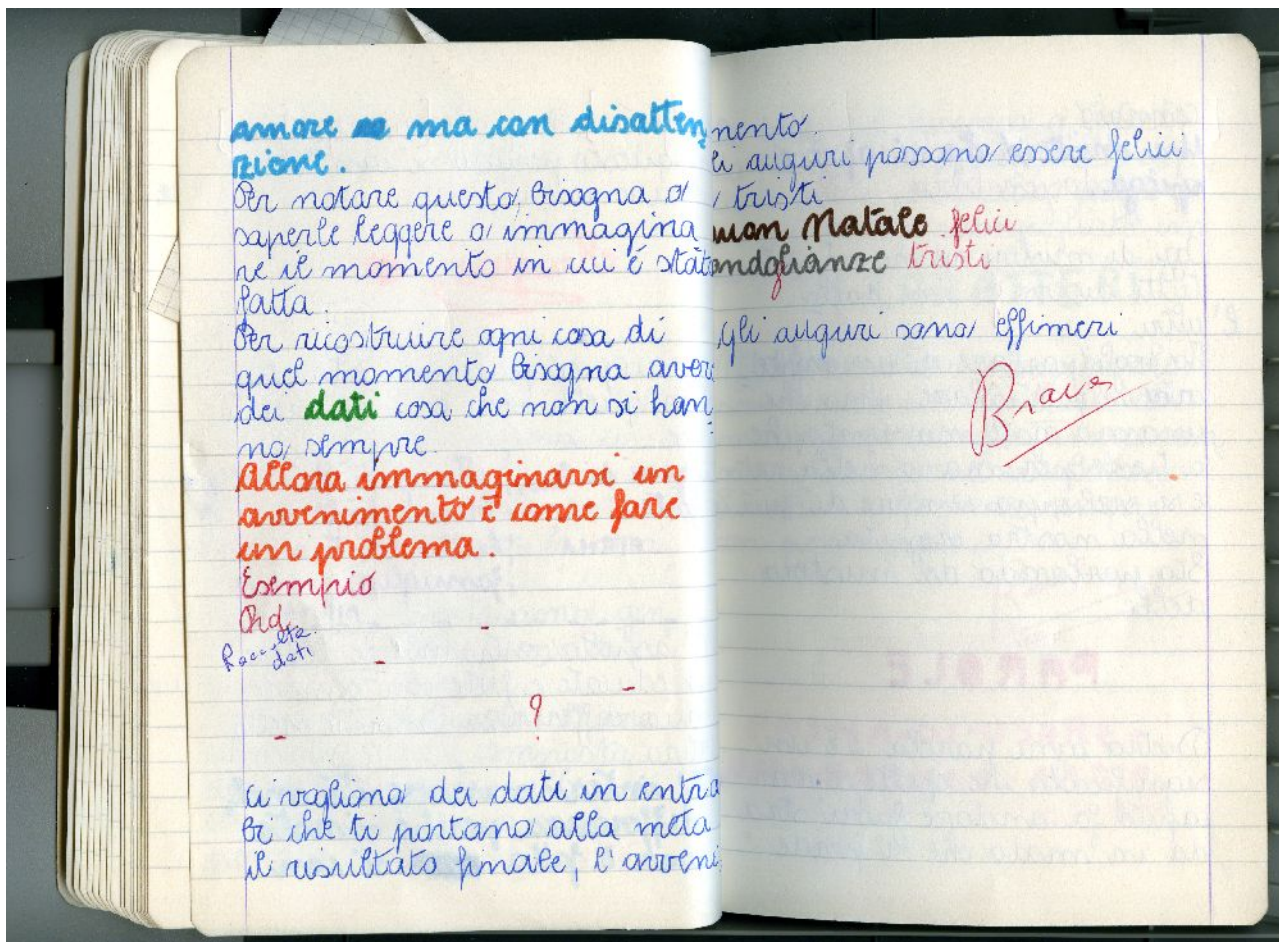 amore ma con disatten
zione.
Per notare questo, bisogna o
saperle leggere o immagina
re il momento in cui é stata
fatta.
Per ricostruire ogni cosa di
quel momento bisogna avere
dei dati cosa che non si han
no sempre.
Allora immaginarsi un
avvenimento è come fare
un problema.
Esempio
Raccolta
dati
?
Ci vogliono dei dati in entra
bi che ti portano alla meta
il risultato finale, l'avveni
mento.
li auguri possono essere felici
tristi
uon Natale felici
andoglianze tristi
gli auguri sono effimeri
Brava